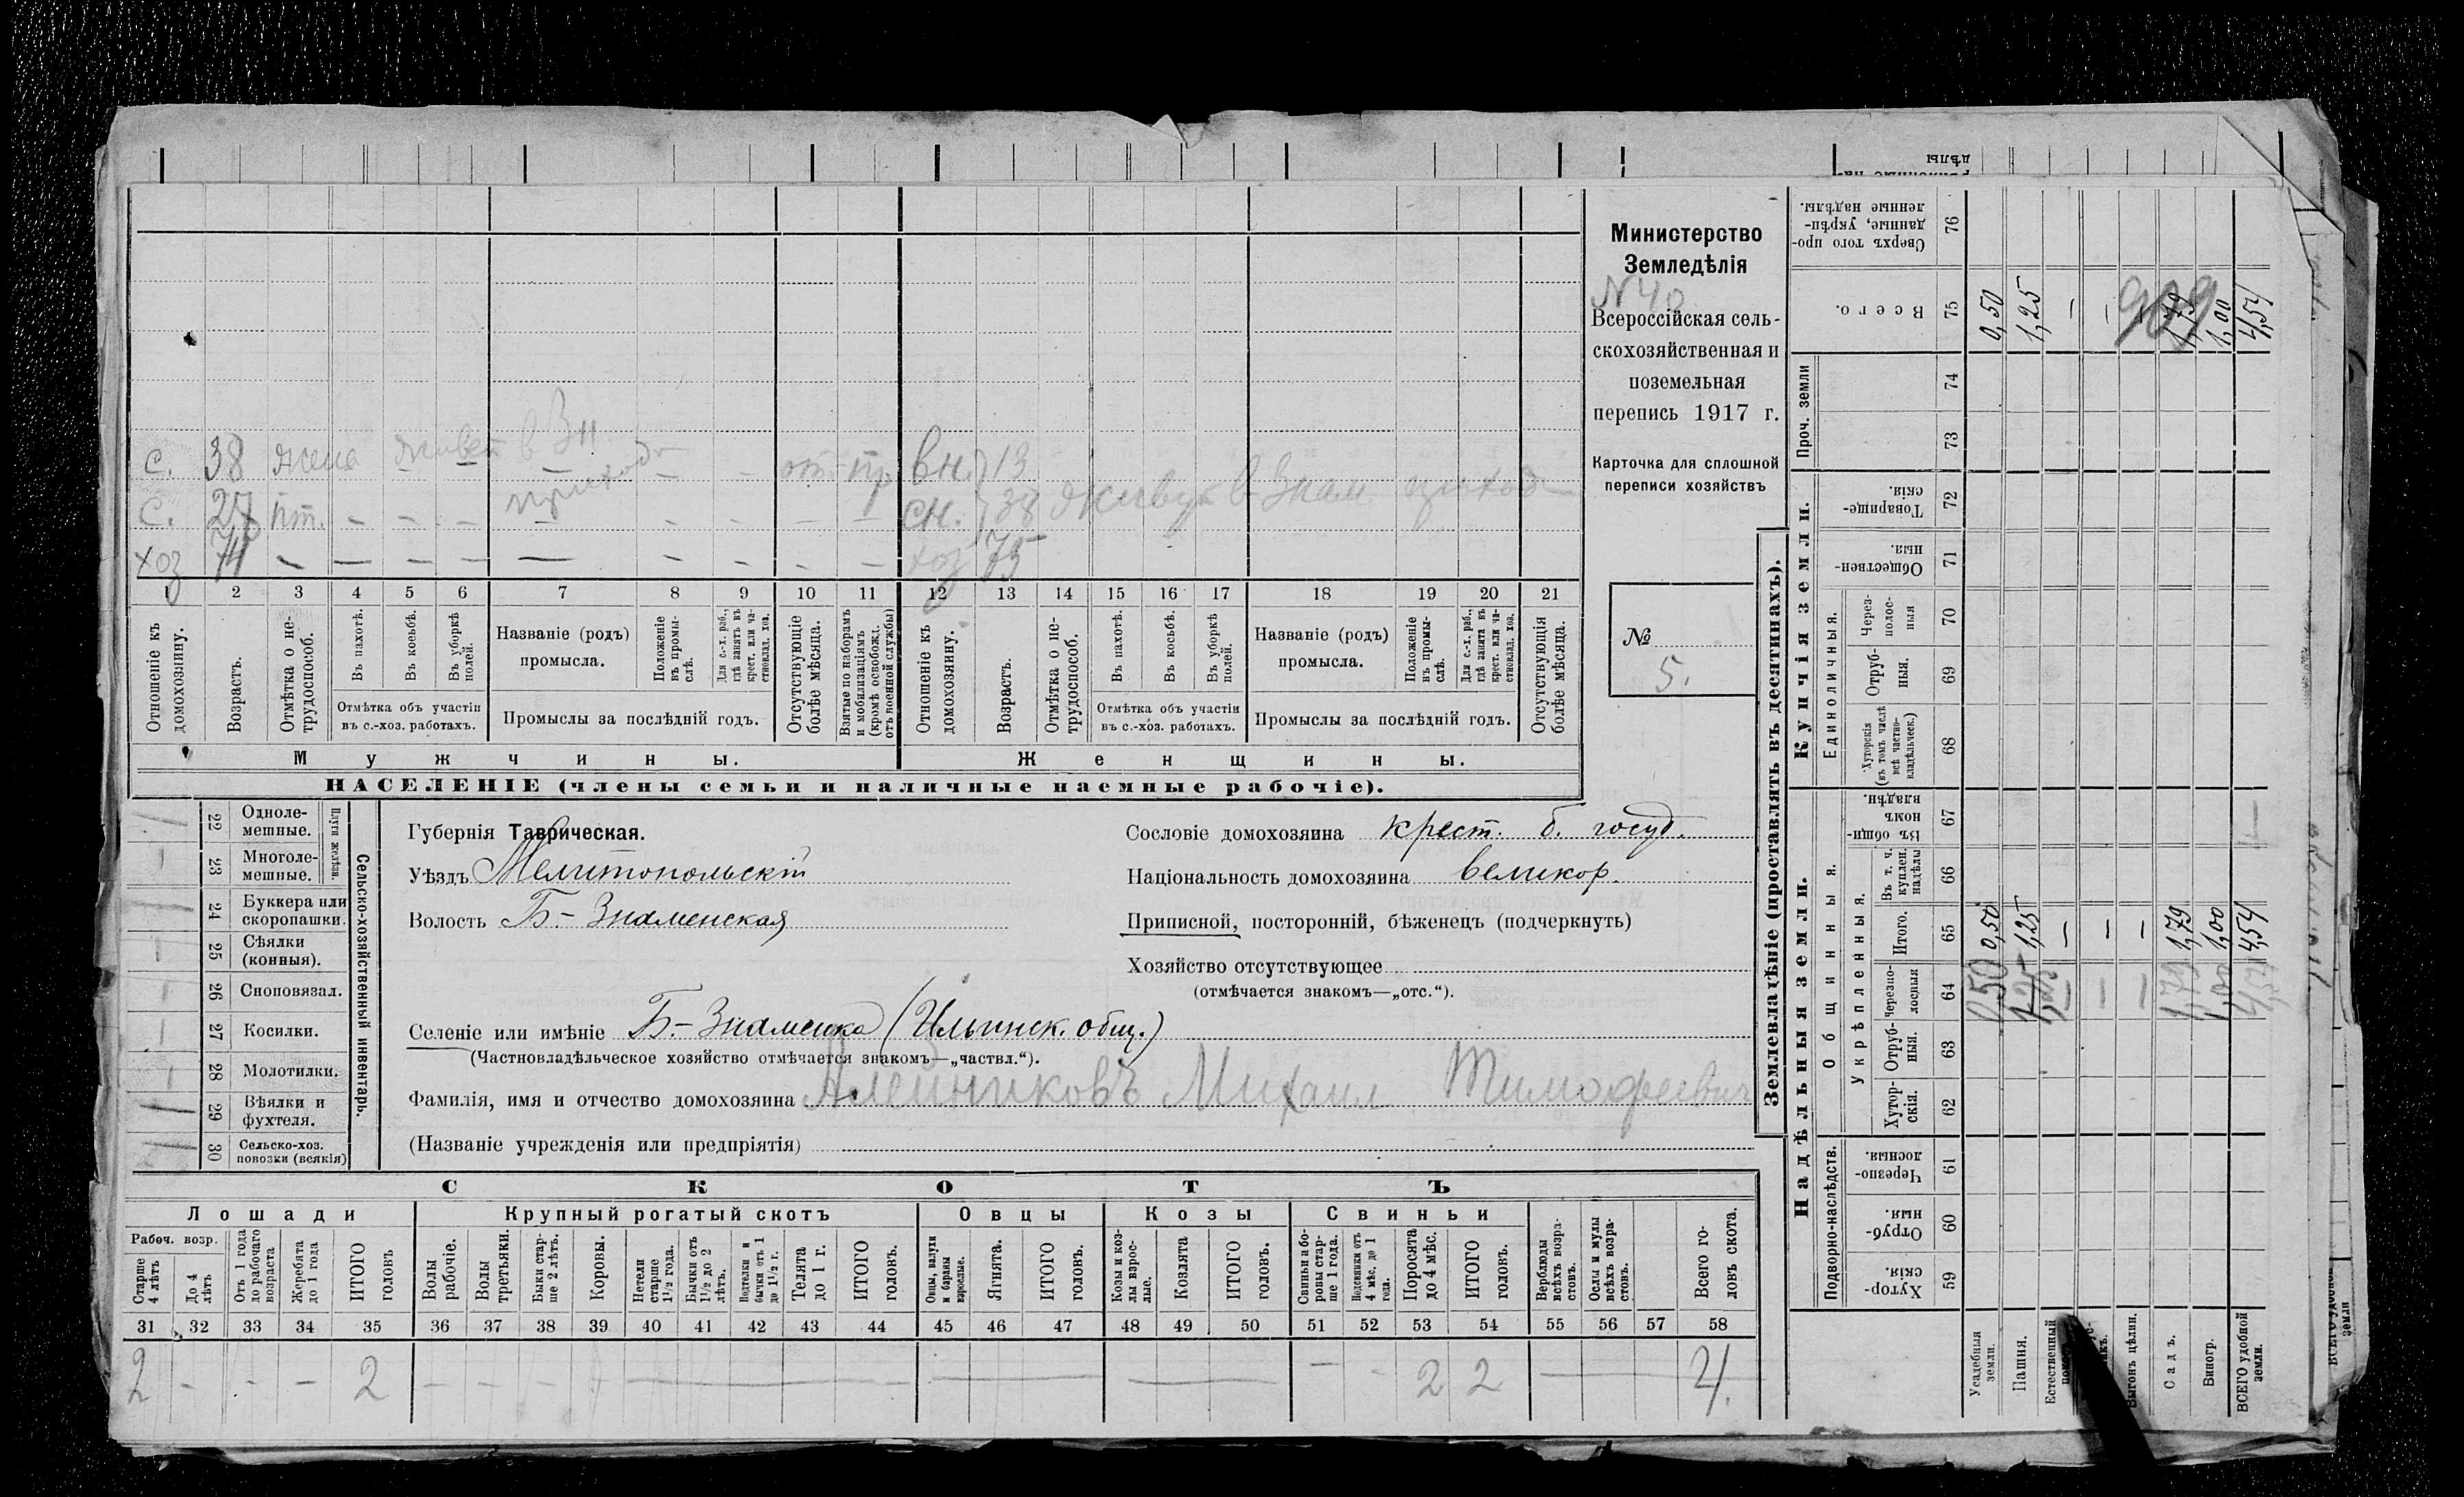 Министерство
Земледѣлія
N 40
Всероссійская сель-
скохозяйственная и
поземельная
перепись 1917 г.
Карточка для сплошной
переписи хозяйствъ
№
5.
с. 38 жена живет в Зн от. пр вн. 13
с. 27 пт. – – – приход – – – – сн. 38 живут в Знам. приход
хоз 74 – – – – – – – – – хоз 75
1 2 3 4 5 6 7 8 9 10 11 12 13 14 15 16 17 18 19 20 21
Отношеніе къ домохозяину.
Возрастъ.
Отмѣтка о не-трудоспособ.
Въ пахотѣ.
Въ косьбѣ.
Въ уборкѣ полей.
Отмѣтка объ участіи
въ с.-хоз. работахъ.
Названіе (родъ)
промысла.
Положеніе въ промы-слѣ.
Для с.-х. раб., гдѣ занятъ въ крест. или ча-стновлад. хоз.
Промыслы за послѣдній годъ.
Отсутствующіе болѣе мѣсяца.
Взятые по наборамъ и мобилизаціямъ (кромѣ освобожд. отъ военной службы)
Отношеніе къ домохозяину.
Возрастъ.
Отмѣтка о не-трудоспособ.
Въ пахотѣ.
Въ косьбѣ.
Въ уборкѣ полей.
Отмѣтка объ участіи
въ с.-хоз. работахъ.
Названіе (родъ)
промысла.
Положеніе въ промы-слѣ.
Для с.-х. раб., гдѣ занята въ крест. или ча-стновлад. хоз.
Промыслы за послѣдній годъ.
Отсутствующія болѣе мѣсяца.
Мужчины.
Женщины.
НАСЕЛЕНІЕ (члены семьи и наличные наемные рабочіе).
22 Одноле-мешные.
23 Многоле-мешные.
Плуги желѣзн.
24 Буккера или скоропашки.
25 Сѣялки (конныя).
26 Сноповязал.
27 Косилки.
28 Молотилки.
29 Вѣялки и фухтеля.
30 Сельско-хоз. повозки (всякія)
Сельско-хозяйственный инвентарь.
Губернія Таврическая.
Уѣздъ Мелитопольскій
Волость Б-Знаменская
Сословіе домохозяина крест. б. госуд.
Національность домохозяина великор.
Приписной, посторонній, бѣженецъ (подчеркнуть)
Хозяйство отсутствующее
(отмѣчается знакомъ—„отс.“).
Селеніе или имѣніе Б.-Знаменка (Ильинск. общ.)
(Частновладѣльческое хозяйство отмѣчается знакомъ—„частвл.“).
Фамилія, имя и отчество домохозяина Алейниковъ Михаил Тимофеевич
(Названіе учрежденія или предпріятія)
СКОТЪ
Лошади
Крупный рогатый скотъ
Овцы
Козы
Свиньи
Рабоч. возр.
Старше 4 лѣтъ
До 4 лѣтъ
Отъ 1 года до рабочаго возраста
Жеребята до 1 года
ИТОГО головъ
Волы рабочіе.
Волы третьяки.
Быки стар-ше 2 лѣтъ.
Коровы.
Нетели старше 1½ года.
Бычки отъ 1½ до 2 лѣтъ.
Подтелки и бычки отъ 1 до 1½ г.
Телята до 1 г.
ИТОГО головъ.
Овцы, валухи и бараны взрослые.
Ягнята.
ИТОГО головъ.
Козы и коз-лы взрос-лые.
Козлята
ИТОГО головъ.
Свиньи и бо-ровы стар-ше 1 года.
Подсвинки отъ 4 мѣс. до 1 года.
Поросята до 4 мѣс.
ИТОГО головъ.
Верблюды всѣхъ возра-стовъ.
Ослы и мулы всѣхъ возра-стовъ.
Всего го-ловъ скота.
31 32 33 34 35 36 37 38 39 40 41 42 43 44 45 46 47 48 49 50 51 52 53 54 55 56 57 58
2 – – – 2 – – – – – – – 2 2 – 4.
Землевладѣніе (проставлять въ десятинахъ).
Надѣльныя земли.
Купчія земли.
Проч. земли
Подворно-наслѣдств.
Общинныя.
Укрѣпленныя.
Единоличныя.
Хутор-скія. 59
Отруб-ныя. 60
Черезпо-лосныя. 61
Хутор-скія. 62
Отруб-ныя. 63
черезпо-лосныя 64
Итого. 65
Въ т. ч. куплен. надѣлы 66
Въ общин-номъ владѣн. 67
Хуторскія (въ томъ числѣ всѣ частно-владѣльческ.) 68
Отруб-ныя. 69
Через-полос-ныя 70
Обществен-ныя. 71
Товарище-скія. 72
73
74
Всего. 75
Сверхъ того про-данные, укрѣп-ленные надѣлы. 76
Усадебная земли.
Пашня.
Естественный
Выгонъ цѣлин.
Садъ.
Виногр.
ВСЕГО удобной земли.
0,50 1,25 – – – 1,79 1,00 4,54
0,50 1,25 – – – 1,79 1,00 4,54
0,50 1,25 – – – 1,79 1,00 4,54
909